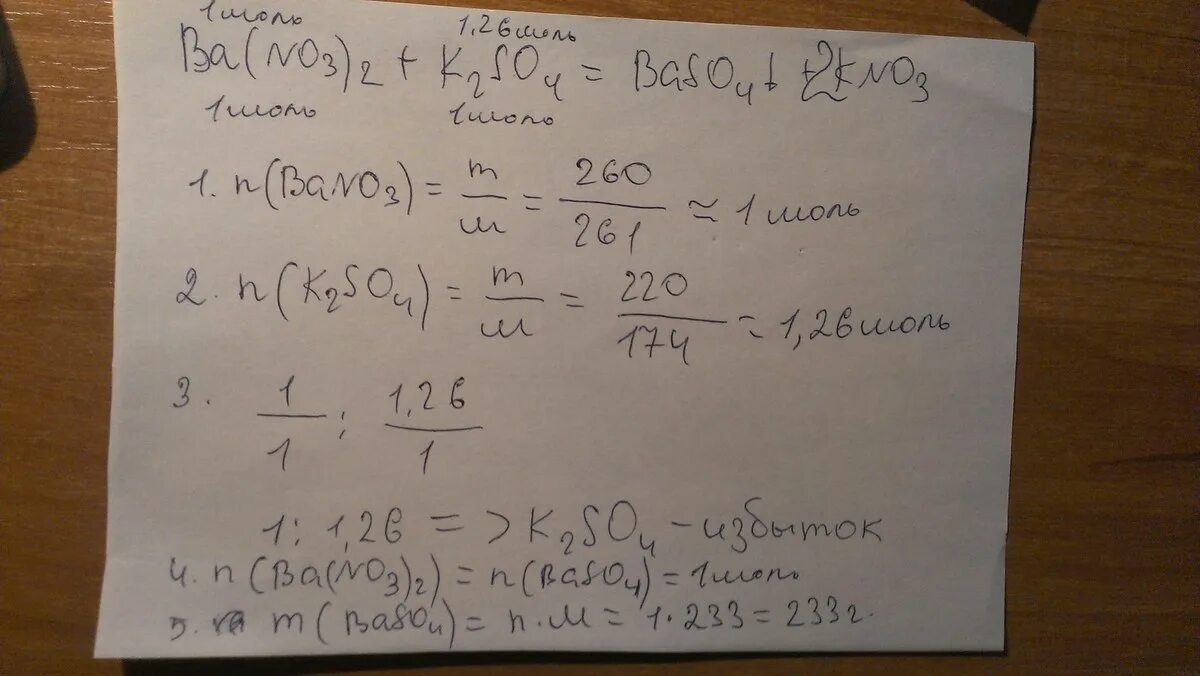 1моль 1,26моль
Ba(NO3)2 + K2SO4 = BaSO4↓ + 2KNO3
1моль 1моль
1. n(BaNO3) = m/M = 260/261 ≃ 1 моль
2. n(K2SO4) = m/M = 220/174 = 1,26моль
3. 1/1 ; 1,26/1
1 : 1,26 => K2SO4 - избыток
4. n(Ba(NO3)2) = n(BaSO4) = 1моль
5. m(BaSO4) = n·M = 1·233 = 233г.